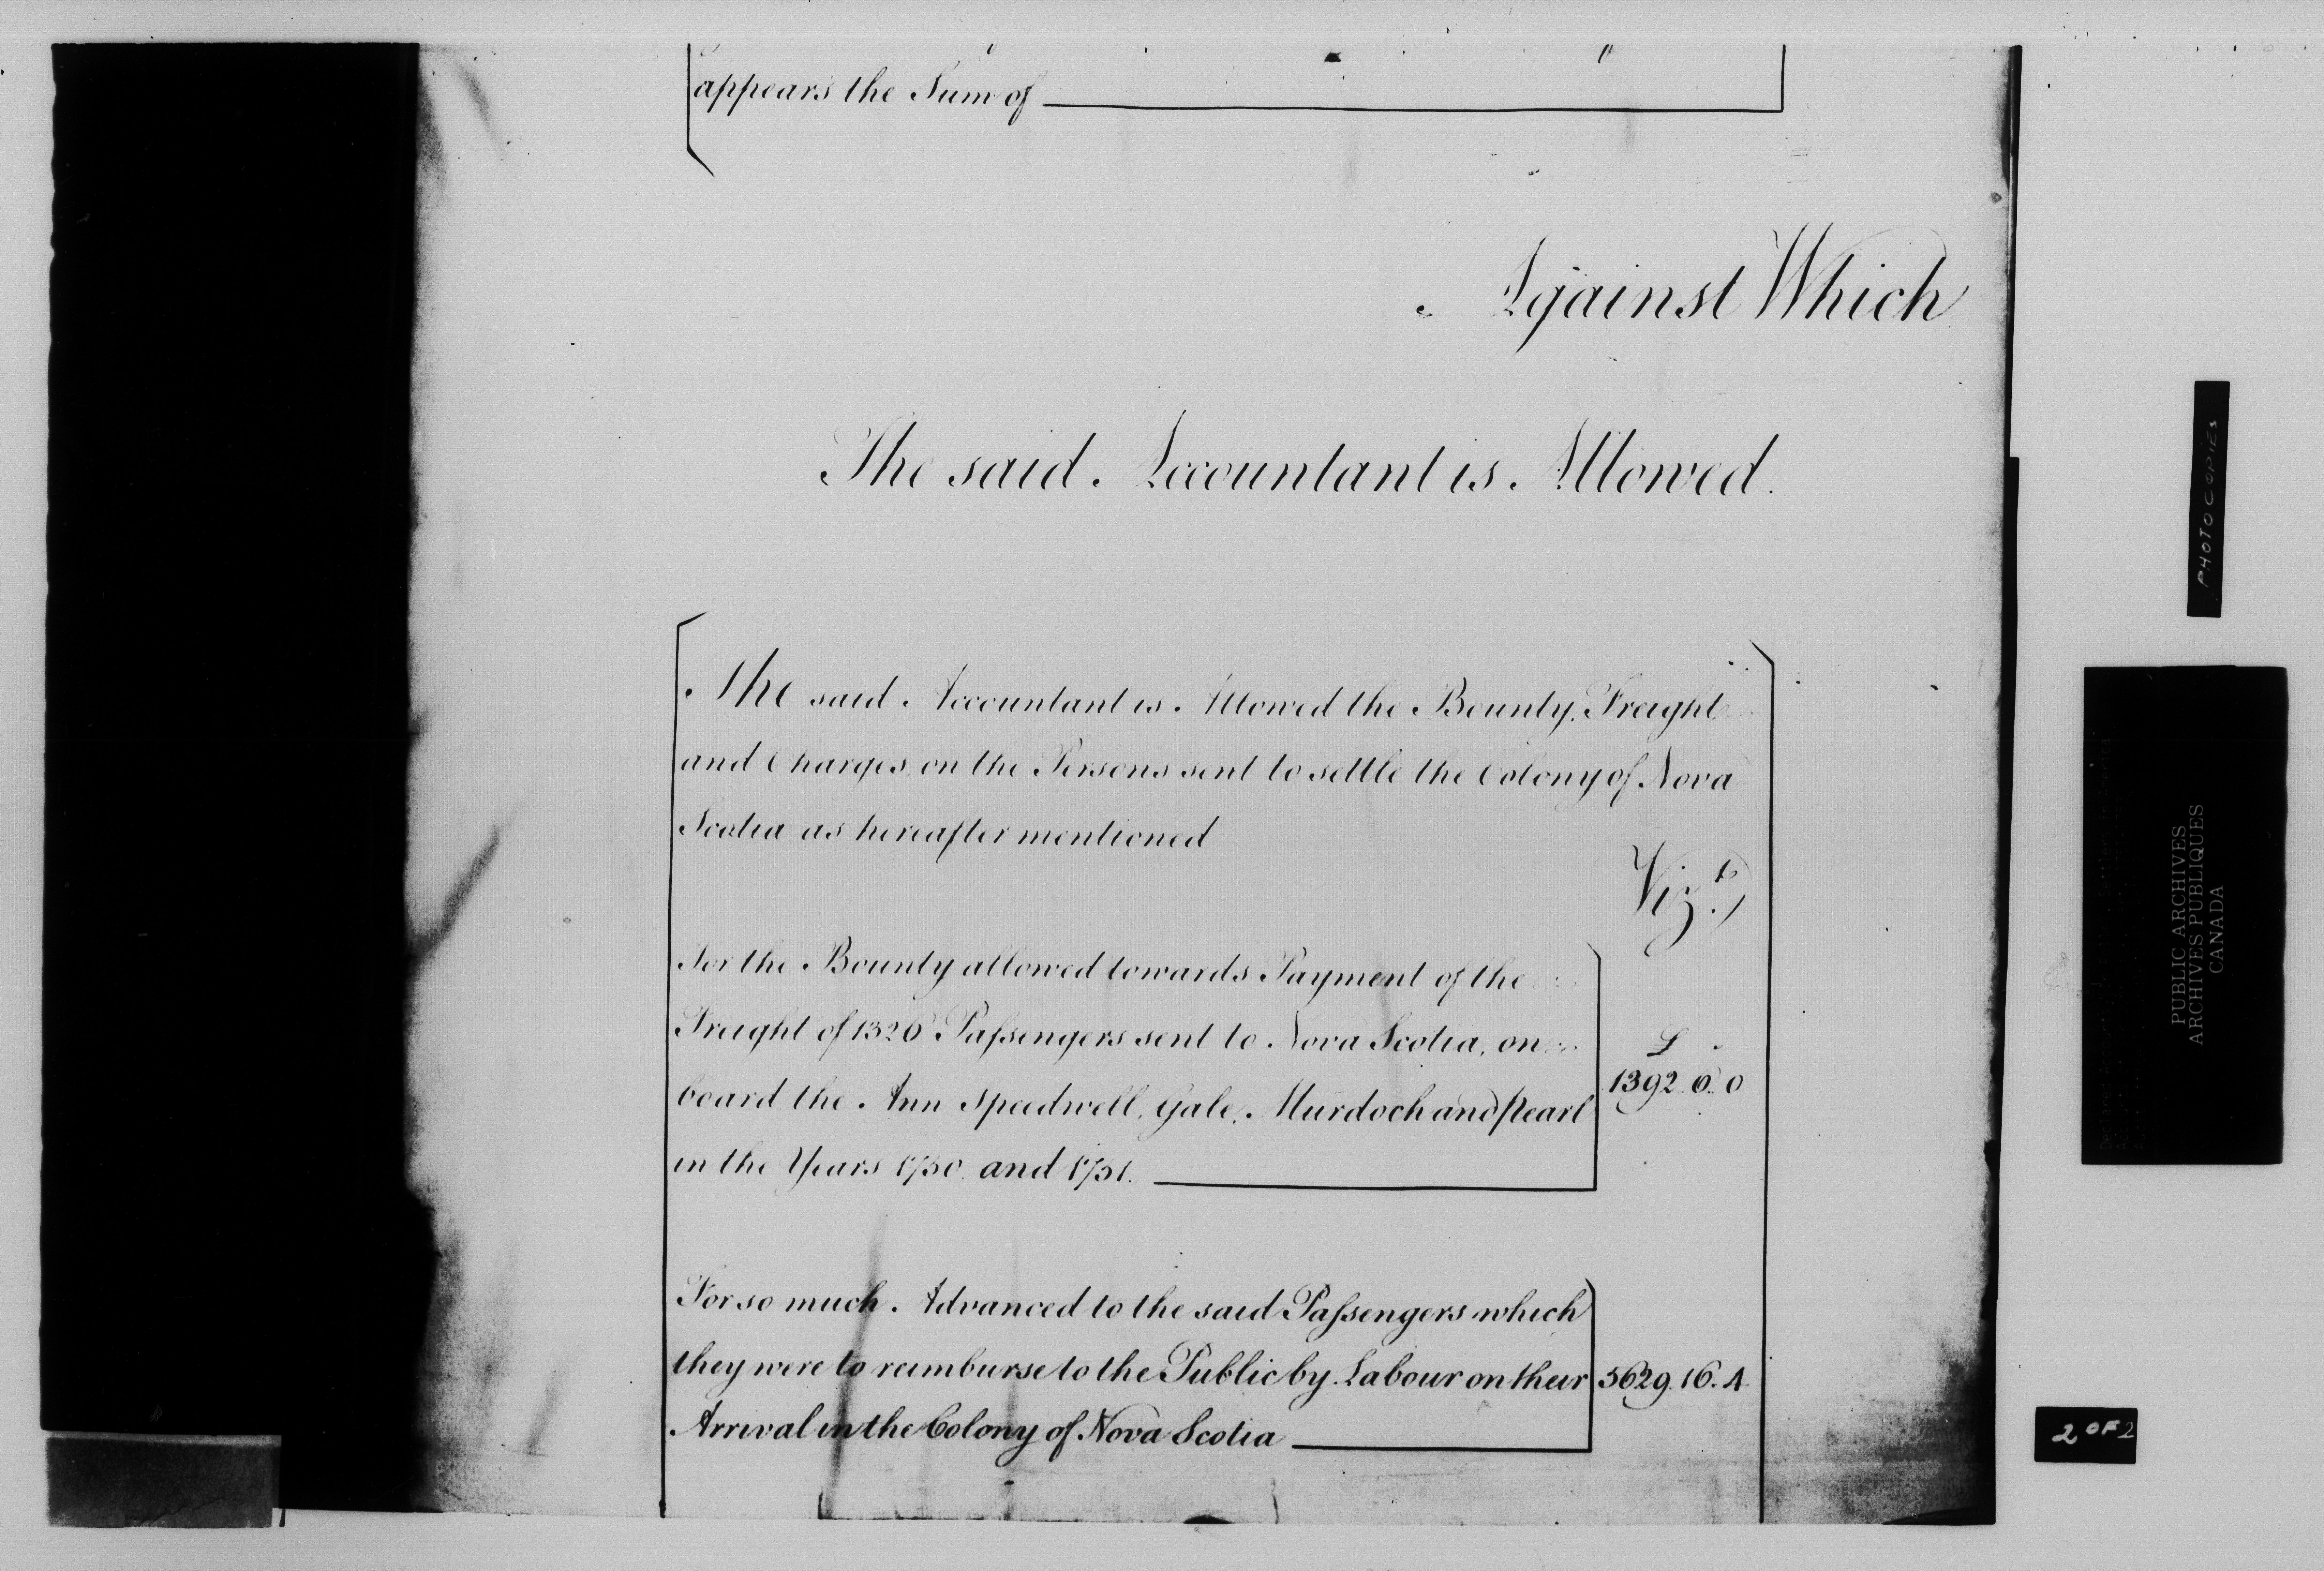 appears the Sum of
Against Which
The said Accountant is Allowed.
The said Accountant is Allowed the Bounty, Freight
and Charges on the Persons sent to settle the Colony of Nova
Scotia as hereafter mentioned
Viz.t
For the Bounty allowed towards Payment of the
Freight of 1326 Paſsengers sent to Nova Scotia, on
board the Ann Speedwell, Gale, Murdoch and Pearl
in the Years 1750 and 1751.
£
1392.6.0
For so much Advanced to the said Paſsengers which
they were to reimburse to the Public by Labour on their
Arrival in the Colony of Nova Scotia
5629.16.4
PHOTOCOPIES
PUBLIC ARCHIVES
ARCHIVES PUBLIQUES
CANADA
2 OF 2